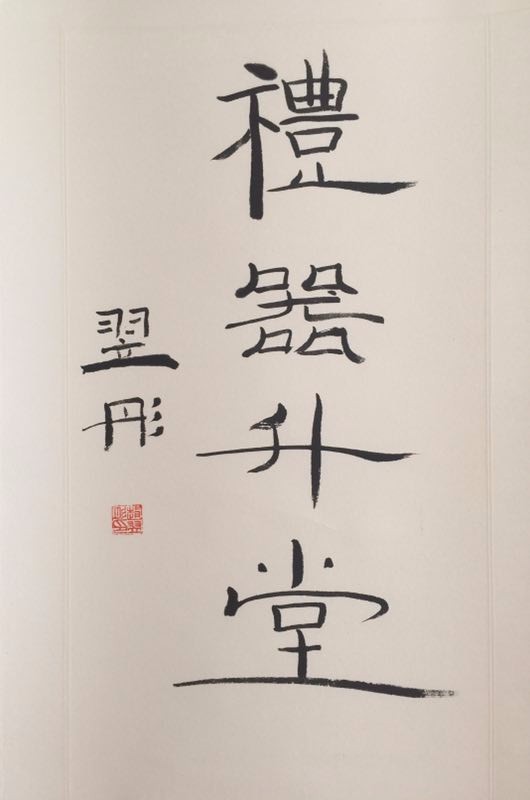 禮器升堂
翌彤